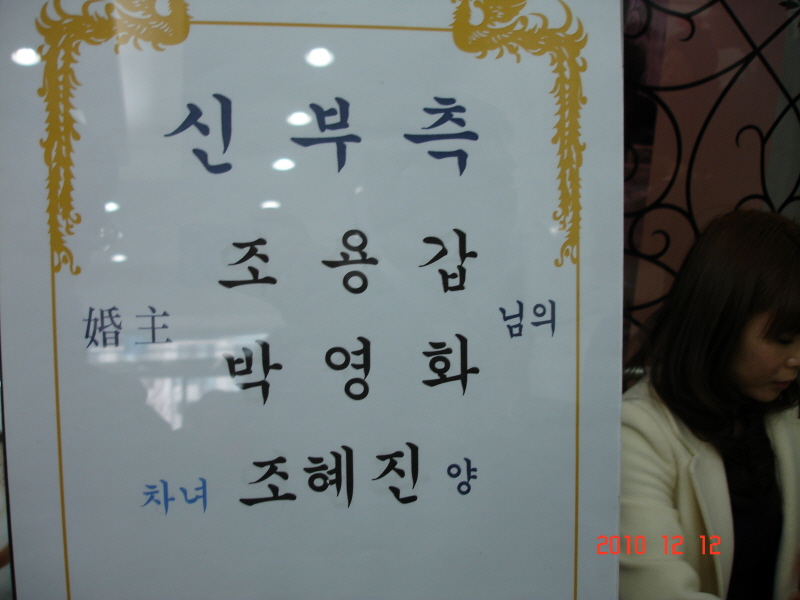 신부측
조용갑
婚主 님의
박영화
차녀 조혜진 양
2010 12 12